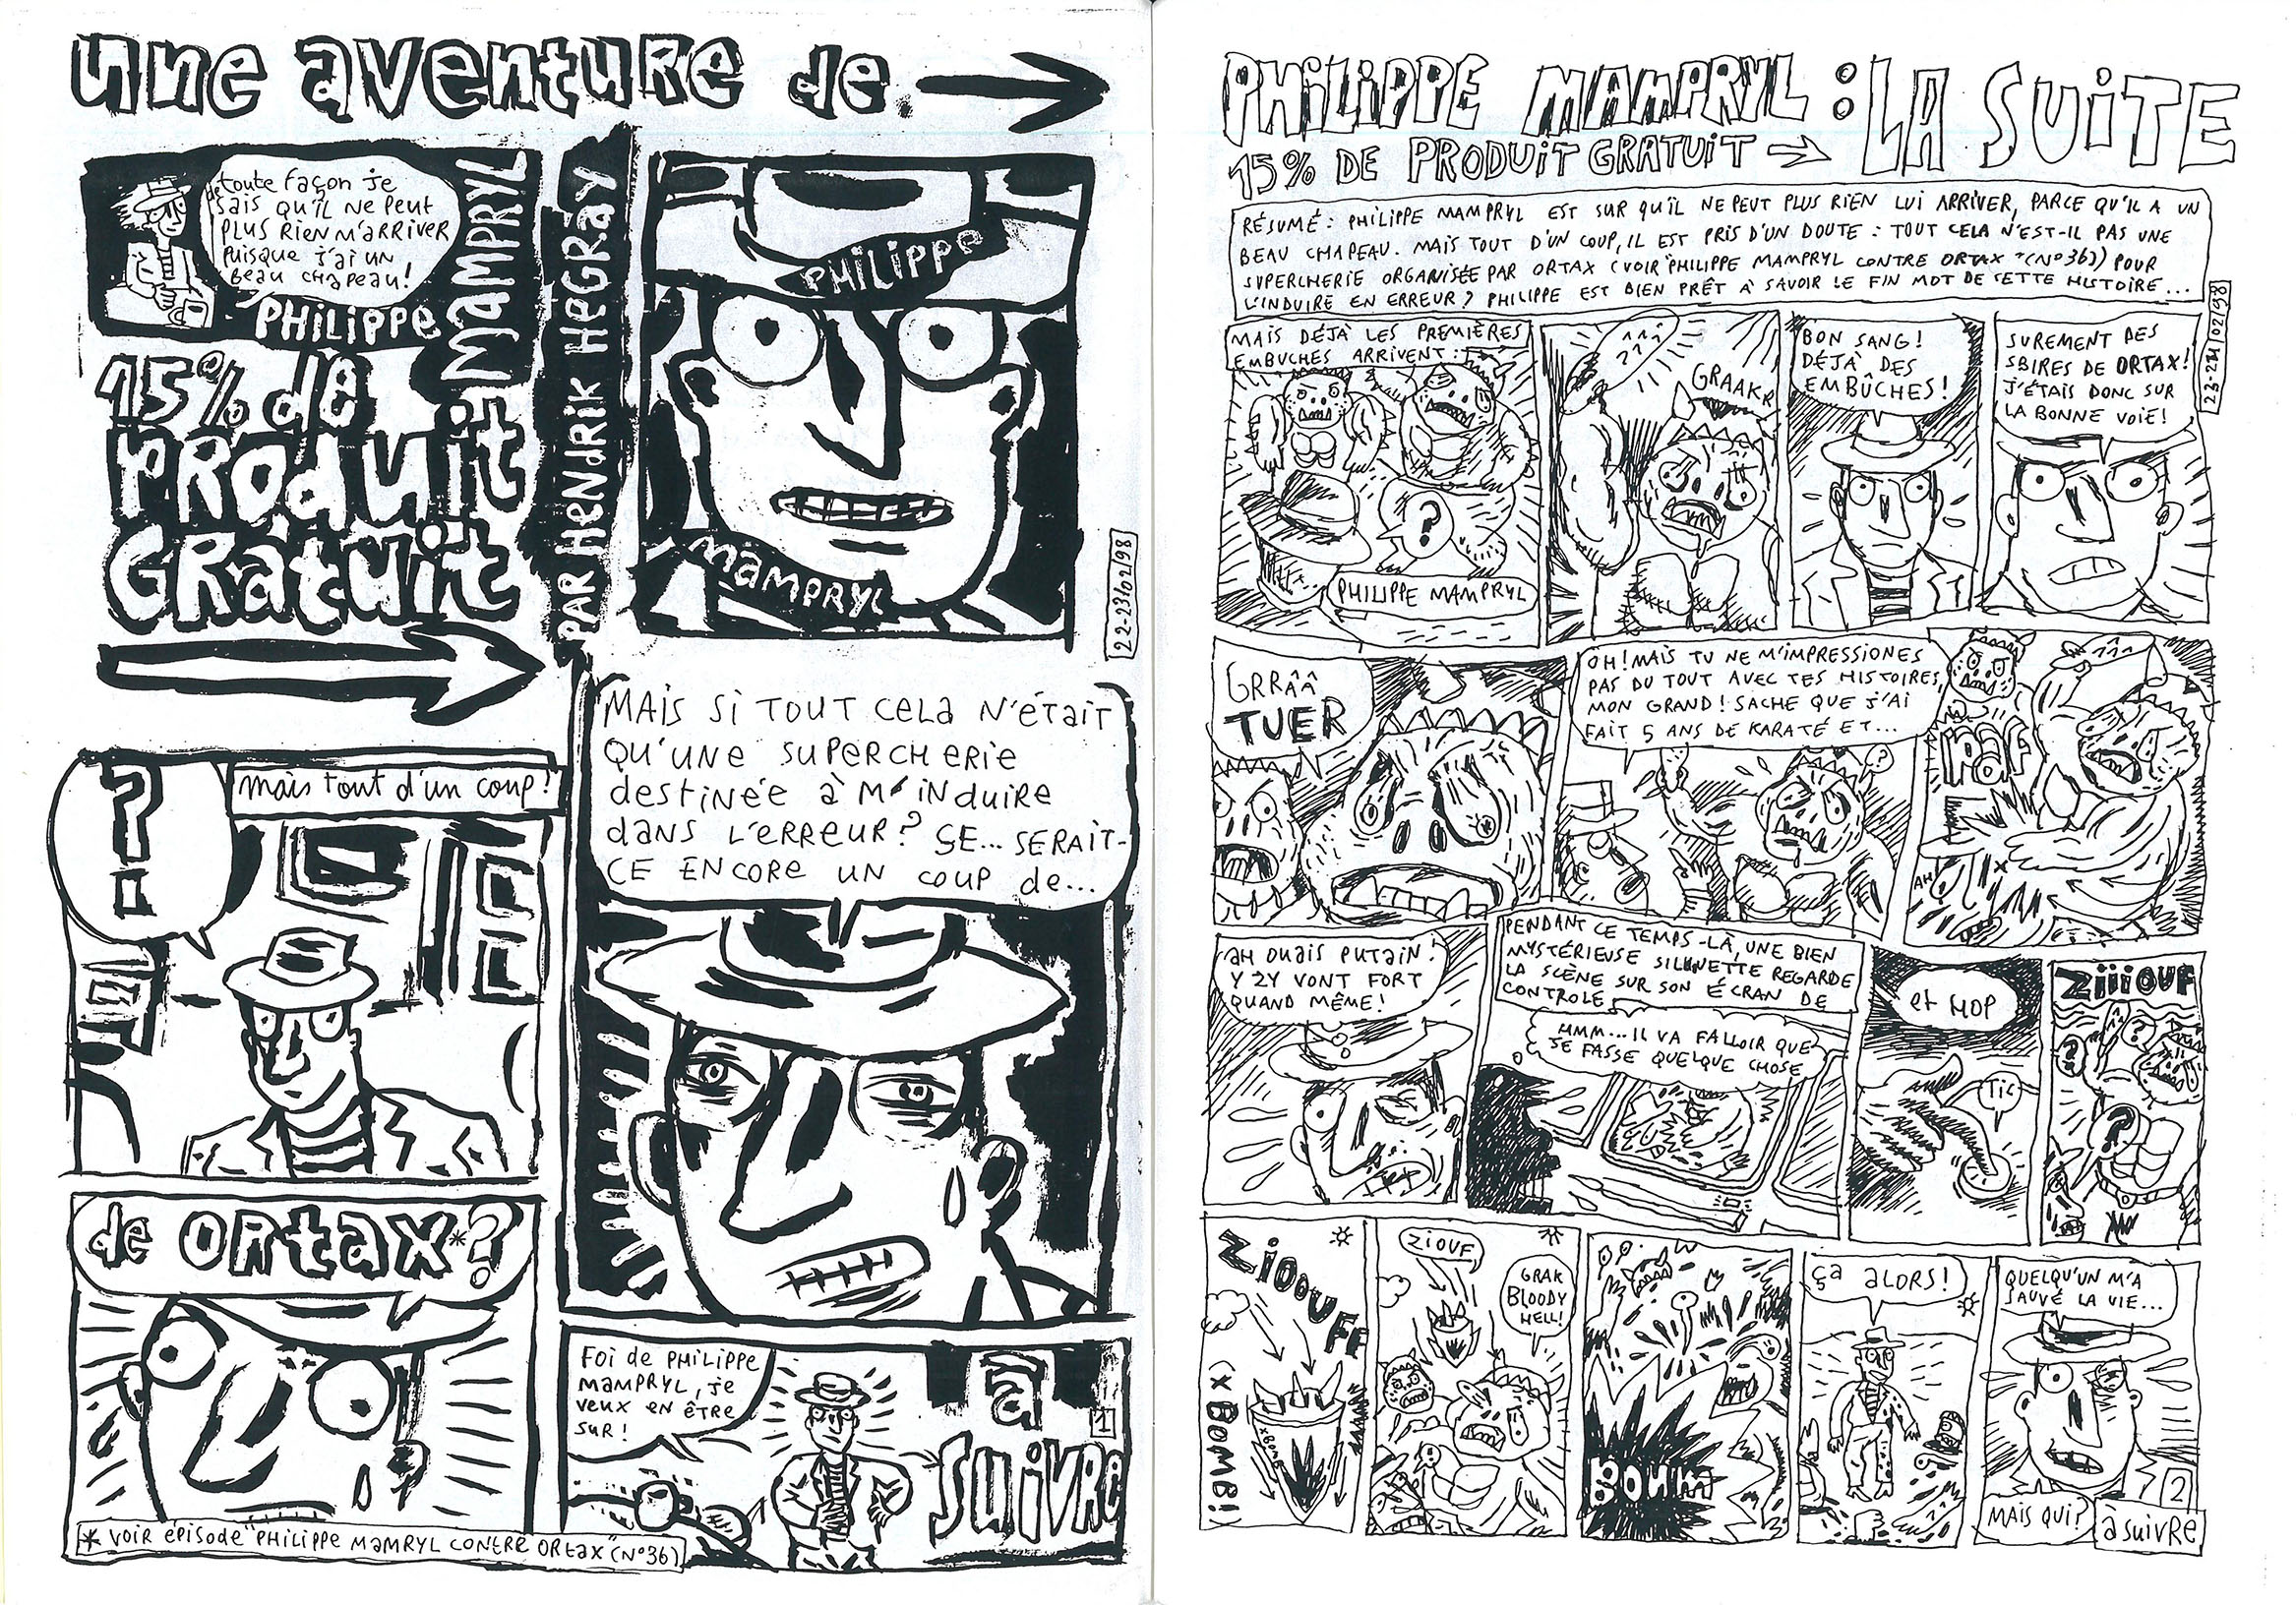 une aventure de
de toute façon je
sais qu'il ne peut
plus rien m'arriver
puisque j'ai un
beau chapeau!
PHILIPPE
MAMPRYL
15% de
PRODUIT
GRATUIT
PAR HENDRIK HEGRAY
PHILIPPE
MAMPRYL
22-23/02/98
?!
mais tout d'un coup!
MAIS SI TOUT CELA N'ÉTAIT
QU'UNE SUPERCHERIE
DESTINÉE À M'INDUIRE
DANS L'ERREUR? SE... SERAIT-
CE ENCORE UN COUP de...
de ORTAX*?
* VOIR ÉPISODE "PHILIPPE MAMPRYL CONTRE ORTAX" (N°36)
FOI de PHILIPPE
MAMPRYL, je
veux en être
sur!
à
SUIVRE
1
PHILIPPE MAMPRYL : LA SUITE
15% DE PRODUIT GRATUIT
RÉSUMÉ: PHILIPPE MAMPRYL EST SUR QU'IL NE PEUT PLUS RIEN LUI ARRIVER, PARCE QU'IL A UN
BEAU CHAPEAU. MAIS TOUT D'UN COUP, IL EST PRIS D'UN DOUTE : TOUT CELA N'EST-IL PAS UNE
SUPERCHERIE ORGANISÉE PAR ORTAX (VOIR "PHILIPPE MAMPRYL CONTRE ORTAX" (N°36)) POUR
L'INDUIRE EN ERREUR? PHILIPPE EST BIEN PRÊT À SAVOIR LE FIN MOT DE CETTE HISTOIRE...
23-24/02/98
MAIS DÉJÀ LES PREMIÈRES
EMBUCHES ARRIVENT:
?
PHILIPPE MAMPRYL
GRAAKR
BON SANG!
DÉJÀ DES
EMBÛCHES!
SUREMENT DES
SBIRES DE ORTAX!
J'ÉTAIS DONC SUR
LA BONNE VOIE!
GRRÂÂ
TUER
OH! MAIS TU NE M'IMPRESSIONES
PAS DU TOUT AVEC TES HISTOIRES,
MON GRAND! SACHE QUE J'AI
FAIT 5 ANS DE KARATÉ ET...
?
PAF
AH
AH OUAIS PUTAIN!
Y ZY VONT FORT
QUAND MÊME!
PENDANT CE TEMPS-LÀ, UNE BIEN
MYSTÉRIEUSE SILHUETTE REGARDE
LA SCÈNE SUR SON ÉCRAN DE
CONTROLE.
HMM... IL VA FALLOIR QUE
JE FASSE QUELQUE CHOSE
et HOP
TIC
ZIIIOUF
?
?
?
ZIOOUFF
(XBOMB!)
XBOMB
ZIOUF
GRAK
BLOODY
HELL!
BOUM
ça ALORS!
QUELQU'UN M'A
SAUVÉ LA VIE...
MAIS QUI?
2
à SUIVRE